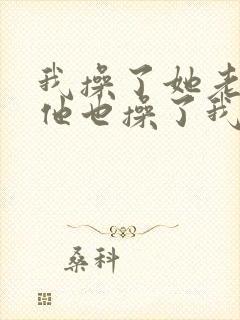 我操了她老
他也操了我
桑科